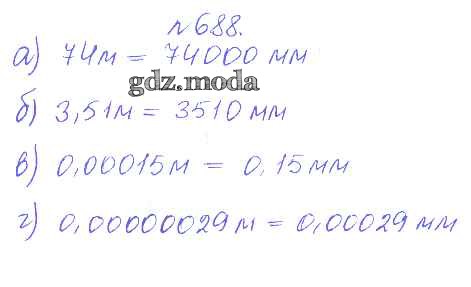 №688.
а) 74м = 74000 мм
gdz.moda
б) 3,51м = 3510 мм
в) 0,00015м = 0,15мм
г) 0,00000029м = 0,00029 мм